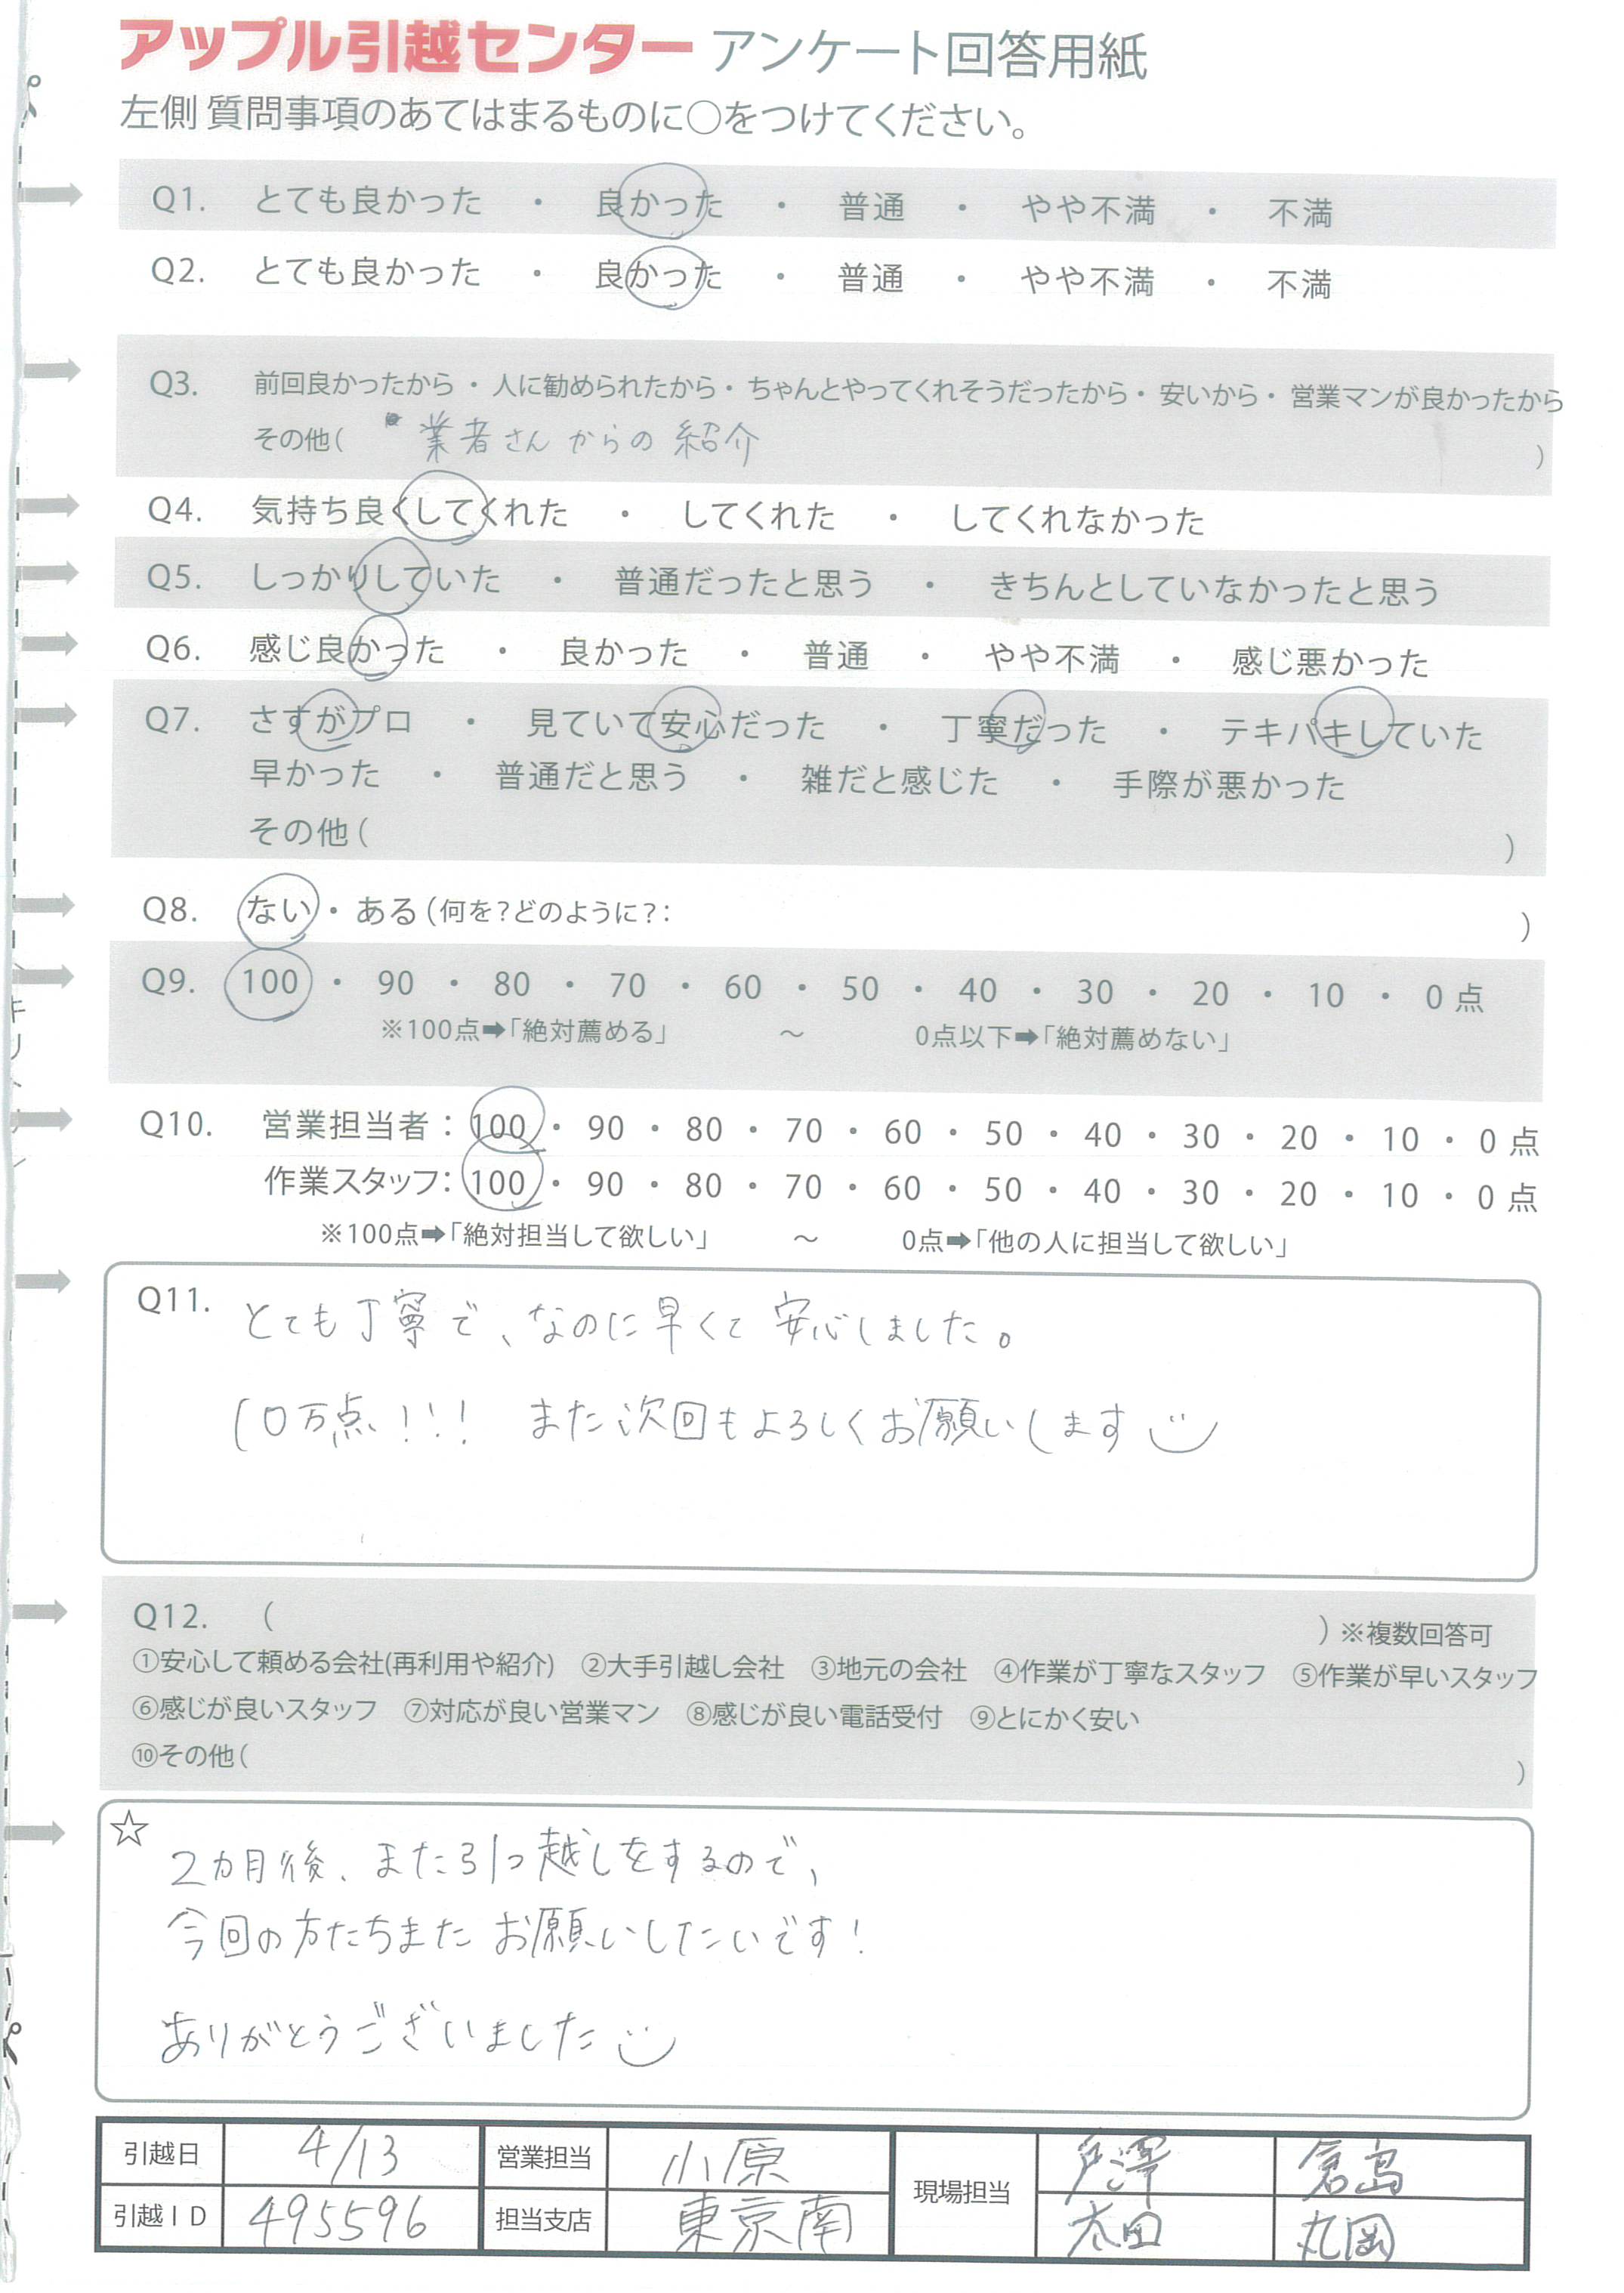 アップル引越センター アンケート回答用紙
左側 質問事項のあてはまるものに○をつけてください。
Q1. とても良かった ・ 良かった ・ 普通 ・ やや不満 ・ 不満
Q2. とても良かった ・ 良かった ・ 普通 ・ やや不満 ・ 不満
Q3. 前回良かったから・人に勧められたから・ちゃんとやってくれそうだったから・安いから・営業マンが良かったから
その他( 業者さんからの紹介 )
Q4. 気持ち良くしてくれた ・ してくれた ・ してくれなかった
Q5. しっかりしていた ・ 普通だったと思う ・ きちんとしていなかったと思う
Q6. 感じ良かった ・ 良かった ・ 普通 ・ やや不満 ・ 感じ悪かった
Q7. さすがプロ ・ 見ていて安心だった ・ 丁寧だった ・ テキパキしていた
早かった ・ 普通だと思う ・ 雑だと感じた ・ 手際が悪かった
その他( )
Q8. ない・ある(何を?どのように?: )
Q9. 100 ・ 90 ・ 80 ・ 70 ・ 60 ・ 50 ・ 40 ・ 30 ・ 20 ・ 10 ・ 0 点
※100点➡「絶対薦める」 ～ 0点以下➡「絶対薦めない」
Q10. 営業担当者:100・90・80・70・60・50・40・30・20・10・0 点
作業スタッフ:100・90・80・70・60・50・40・30・20・10・0 点
※100点➡「絶対担当して欲しい」 ～ 0点➡「他の人に担当して欲しい」
Q11. とても丁寧で、なのに早くて安心しました。
10万点!!! また次回もよろしくお願いします
Q12. ( )※複数回答可
①安心して頼める会社(再利用や紹介) ②大手引越し会社 ③地元の会社 ④作業が丁寧なスタッフ ⑤作業が早いスタッフ
⑥感じが良いスタッフ ⑦対応が良い営業マン ⑧感じが良い電話受付 ⑨とにかく安い
⑩その他( )
☆
2カ月後、また引っ越しをするので、
今回の方たちまたお願いしたいです!
ありがとうございました
引越日 4/13 営業担当 小原 現場担当 戸澤 倉島
引越ID 495596 担当支店 東京南 太田 丸岡